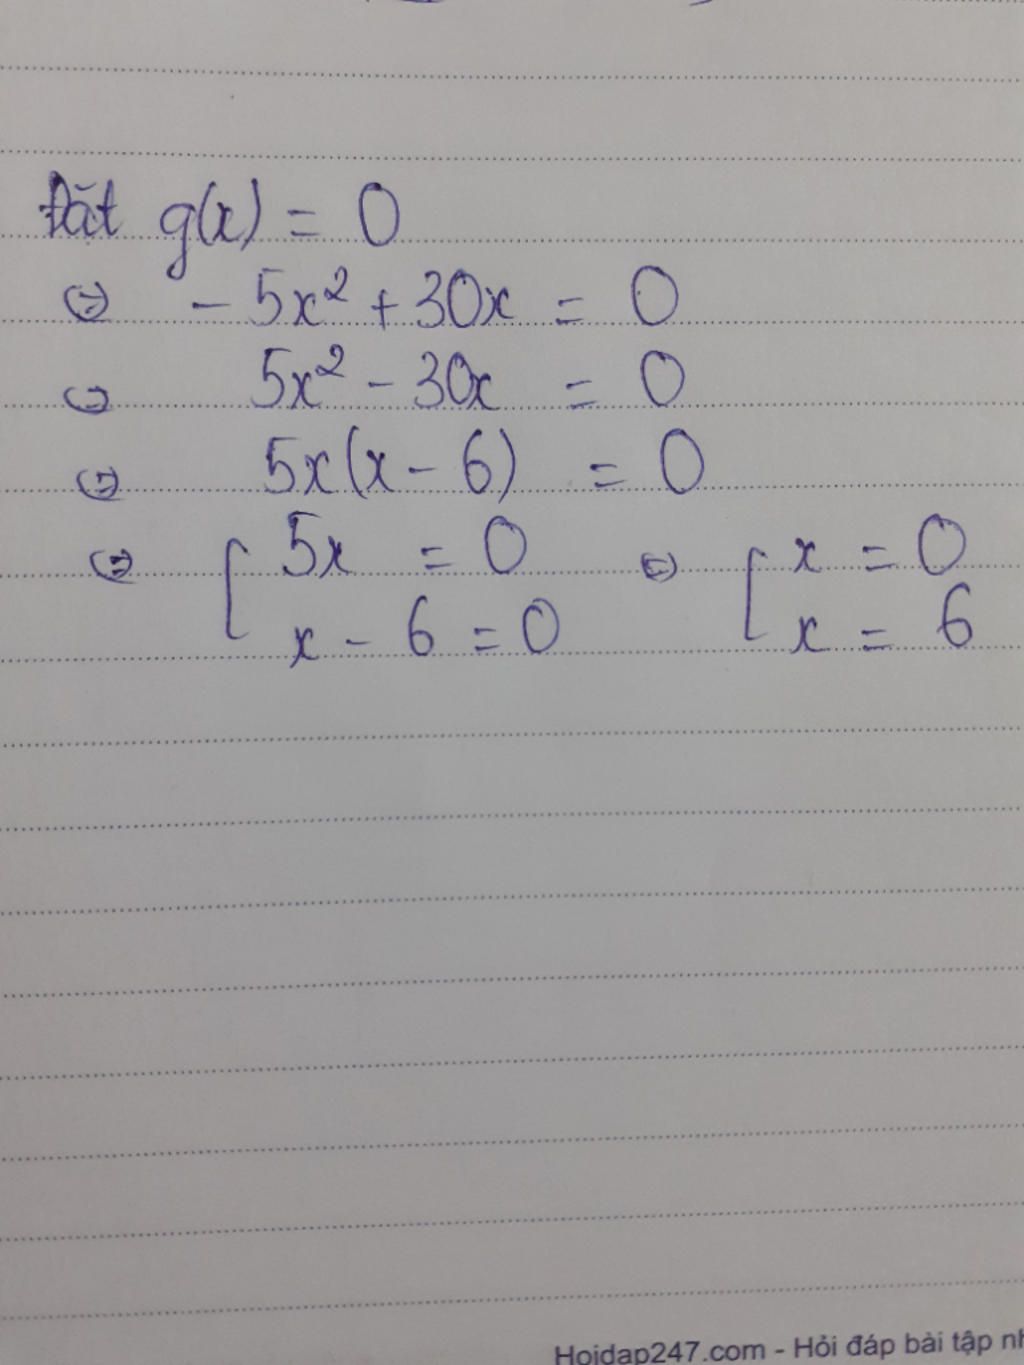 Đặt g(x) = 0
⇔ - 5x² + 30x = 0
⇔ 5x² - 30x = 0
⇔ 5x(x - 6) = 0
⇔ [ 5x = 0 ⇔ [ x = 0
x - 6 = 0 x = 6
Hoidap247.com - Hỏi đáp bài tập